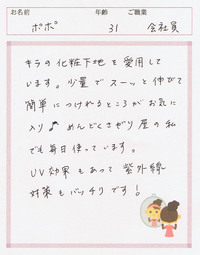 お名前 年齢 ご職業
ポポ 31 会社員
キラの化粧下地を愛用して
います。少量でスーッと伸びて
簡単につけれるところがお気に
入り♪めんどくさがり屋の私
でも毎日使っています。
UV効果もあって紫外線
対策もバッチリです!